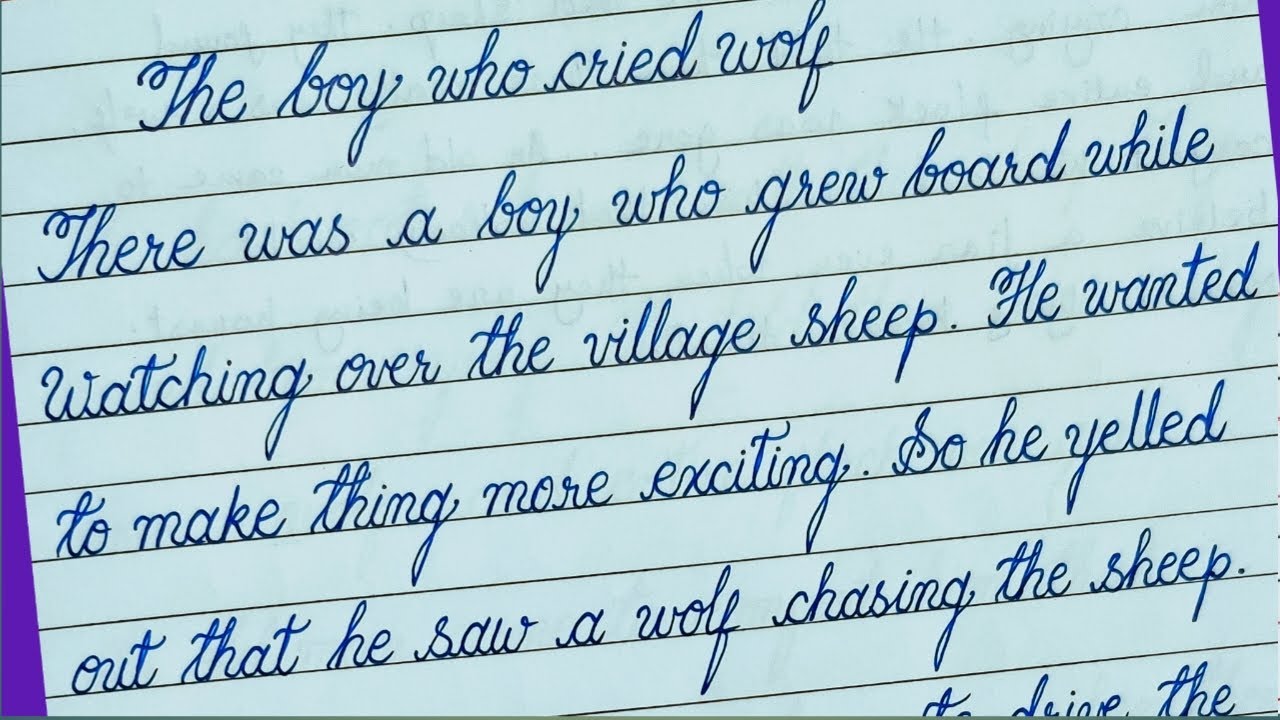 The boy who cried wolf
There was a boy who grew board while
watching over the village sheep. He wanted
to make thing more exciting. So he yelled
out that he saw a wolf chasing the sheep.
to drive the